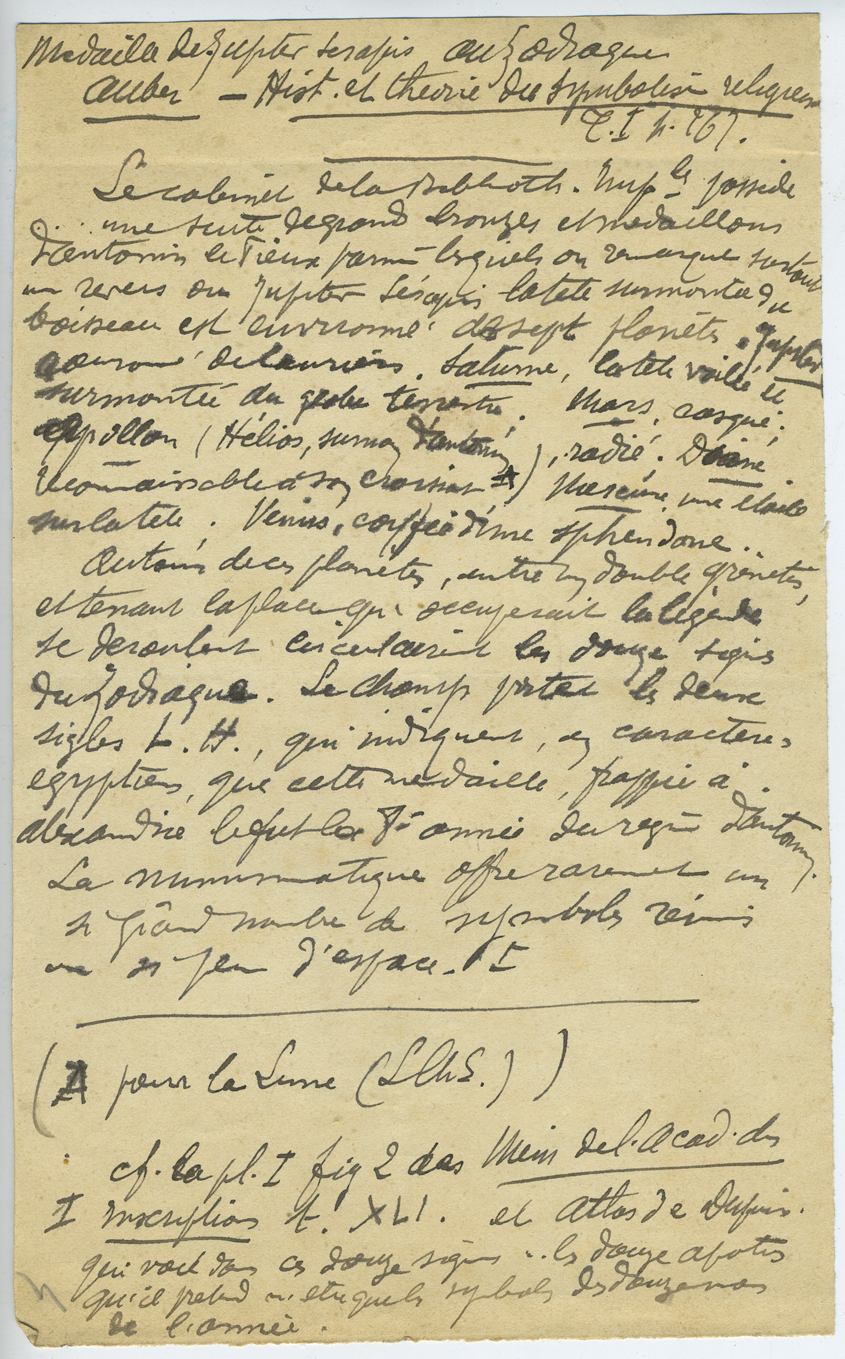 Medaille de Jupiter Serapis au Zodiaque
Auber – Hist. et theorie du symbolisme religieux
T. I p. 167.
Le cabinet de la Biblioth. Imp.le possède
une suite de grand bronzes et médaillons
d'antonin le Pieux parmi lesquels on remarque surtout
un revers ou Jupiter Sérapis la tete surmontée du
boisseau est environné des sept planètes. Jupiter
couronné de lauriers. Saturne, la tete voilée et
surmontée du globe terrestre. Mars, casqué.
Apollon (Hélios, d'antonin), radié. Diane
reconnaissable a son croissant A) Mercure, une étoile
sur la tete. Venus, coiffée d'une sphendone.
Autour de ces planètes, entre un double grénetis,
et tenant la place qu' occuperait la légende
se deroulent circulairement les douze signes
du Zodiaque. Le champ porte les deux
sigles L. H., qui indiquent, en caractères
egyptiens, que cette medaille, frappée à
alexandrie le fut la 8e année du regne d'antonin.
La numismatique offre rarement un
si grand nombre de symboles réunis
en si peu d'espace. I
(A pour la Lune (LChS.) )
cf. la pl. I fig 2 des Mém de l'Acad. des
I Inscriptions t. XLI. et Atlas de Dupuis.
qui voit dans ces douze signes les douze apotres
qu'il pretend n'etre que les symboles des douze mois
de l'année.